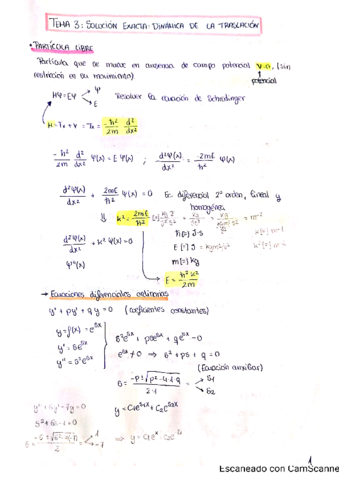 TEMA 3: SOLUCIÓN EXACTA: DINÁMICA DE LA TRASLACIÓN
• PARTÍCULA LIBRE
Partícula que se mueve en ausencia de campo potencial V=0. (sin
restricción en su movimiento)
potencial
HΨ=EΨ Ψ E Resolver la ecuación de Schrödinger
H = Tx + V = Tx = -ħ²/2m d²/dx²
-ħ²/2m d²/dx² Ψ(x) = E Ψ(x) ; d²Ψ(x)/dx² = -2mE/ħ² Ψ(x)
d²Ψ(x)/dx² + 2mE/ħ² Ψ(x) = 0 Ec. diferencial 2º orden, lineal y
homogénea
k² = 2mE/ħ²
d²Ψ(x)/dx² + k² Ψ(x) = 0
ħ[=] J·s
E [=] J
m[=] kg
E = ħ²k²/2m
→ Ecuaciones diferenciales ordinarias
y'' + py' + qy = 0 (coeficientes constantes)
y = f(x) = e^sx
y' = se^sx
y'' = s²e^sx
s²e^sx + pse^sx + qe^sx = 0
e^sx ≠ 0 ⇒ s² + ps + q = 0
(Ecuación auxiliar)
s = -p ± √p² - 4·1·q / 2·1 s1 s2
y = C1e^s1x + C2e^s2x
1
Escaneado con CamScanne